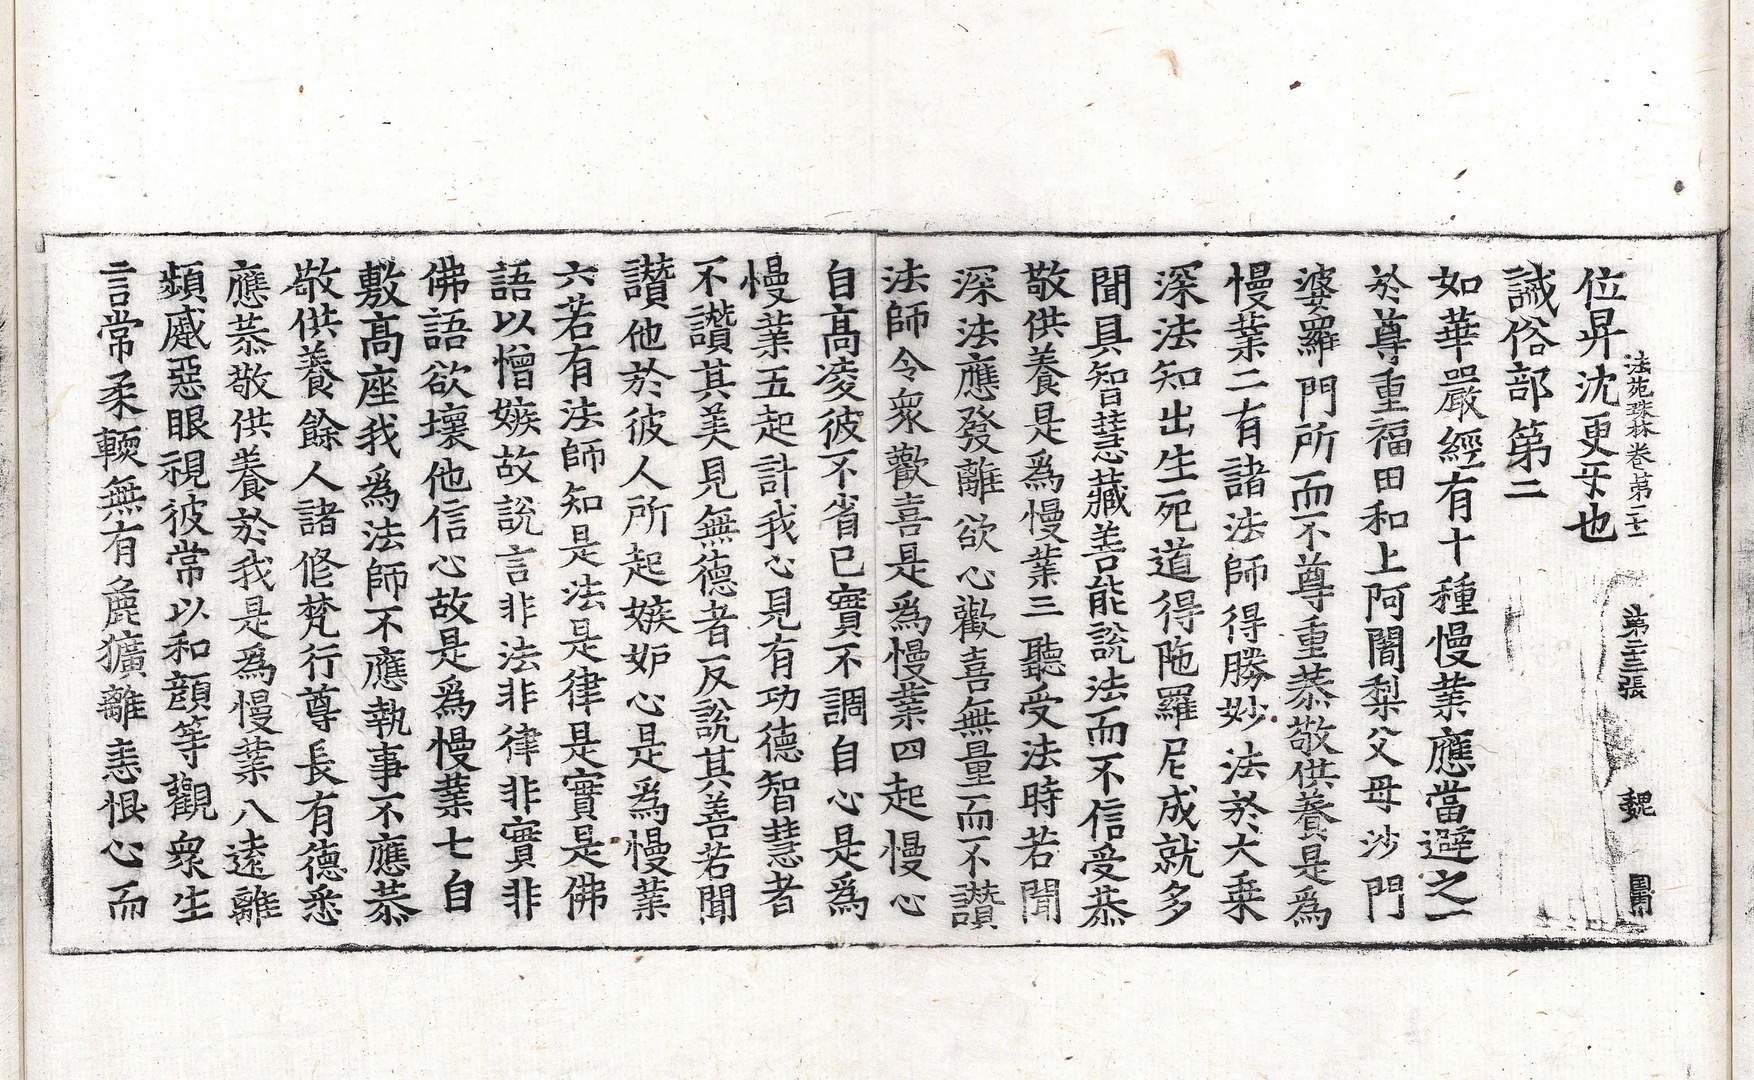 法苑珠林卷第二十七 第二十三張 魏
位昇沈更互也
誡俗部第二
如華嚴經有十種慢業應當避之一
於尊重福田和上阿闍梨父母沙門
婆羅門所而不尊重恭敬供養是爲
慢業二有諸法師得勝妙法於大乗
深法知出生死道得陁羅尼成就多
聞具智慧藏善能說法而不信受恭
敬供養是爲慢業三聽受法時若聞
深法應發離欲心歡喜無量而不讃
法師令衆歡喜是爲慢業四起慢心
自高凌彼不省已實不調自心是爲
慢業五起計我心見有功德智慧者
不讃其美見無德者反說其善若聞
讃他於彼人所起嫉妒心是爲慢業
六若有法師知是法是律是實是佛
語以憎嫉故說言非法非律非實非
佛語欲壞他信心故是爲慢業七自
敷高座我爲法師不應執事不應恭
敬供養餘人諸修梵行尊長有德悉
應恭敬供養於我是爲慢業八遠離
頻慼惡眼視彼常以和顔等觀衆生
言常柔輭無有麁獷離恚恨心而